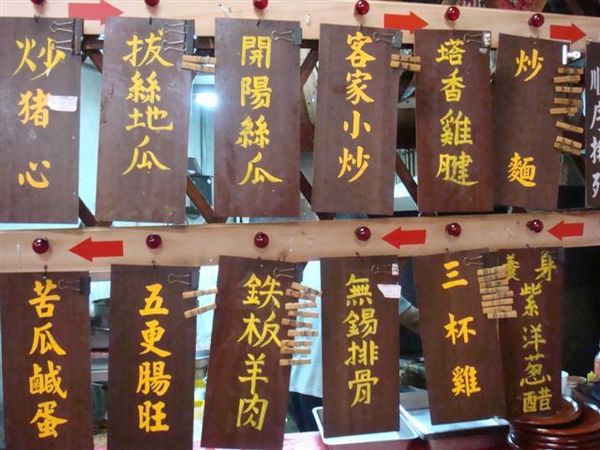 炒猪心
拔絲地瓜
開陽絲瓜
客家小炒
塔香雞腱
炒麵
順序排列
苦瓜鹹蛋
五更腸旺
鉄板羊肉
無錫排骨
三杯雞
養身
紫洋蔥醋